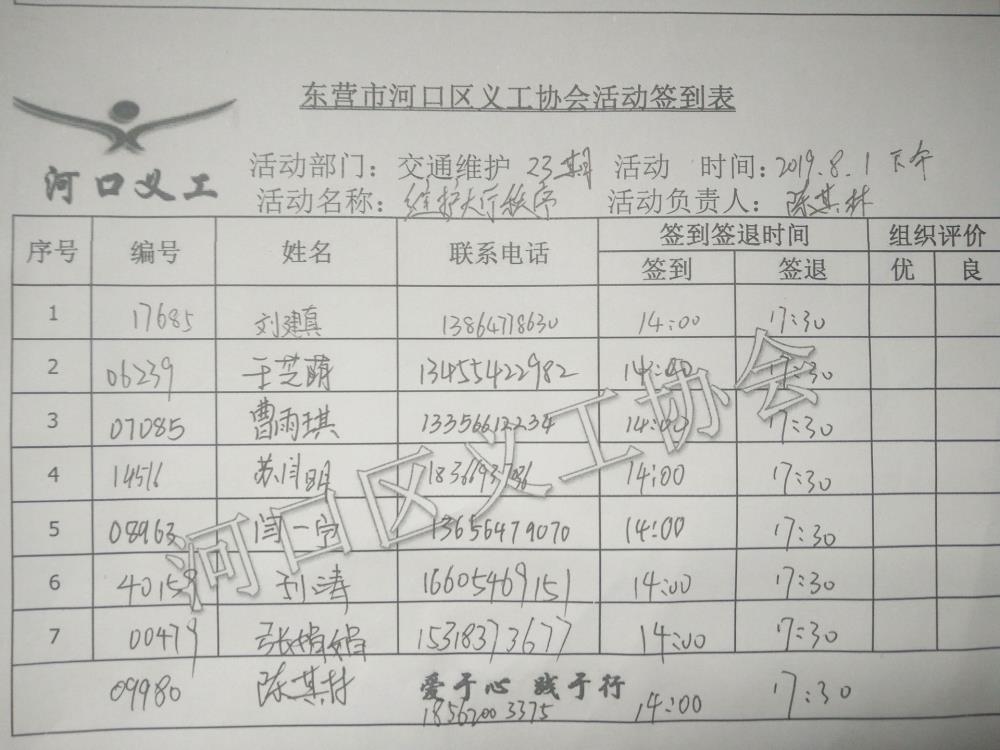 东营市河口区义工协会活动签到表
河口义工
活动部门：交通维护 23期 活动 时间：2019.8.1 下午
活动名称：维护大厅秩序 活动负责人：陈其林
序号 编号 姓名 联系电话 签到签退时间 组织评价
签到 签退 优 良
1 17685 刘建真 13864778630 14:00 17:30
2 06239 于芝萌 13455422982 14:00 17:30
3 07085 曹雨琪 13356612234 14:00 17:30
4 14516 苏闫明 14:00 17:30
5 08963 闫一宁 13656479070 14:00 17:30
6 40159 刘涛 16605469151 14:00 17:30
7 00479 张娟娟 15318373677 14:00 17:30
09980 陈其林 爱于心 践于行 14:00 17:30
18562003375
河口区义工协会